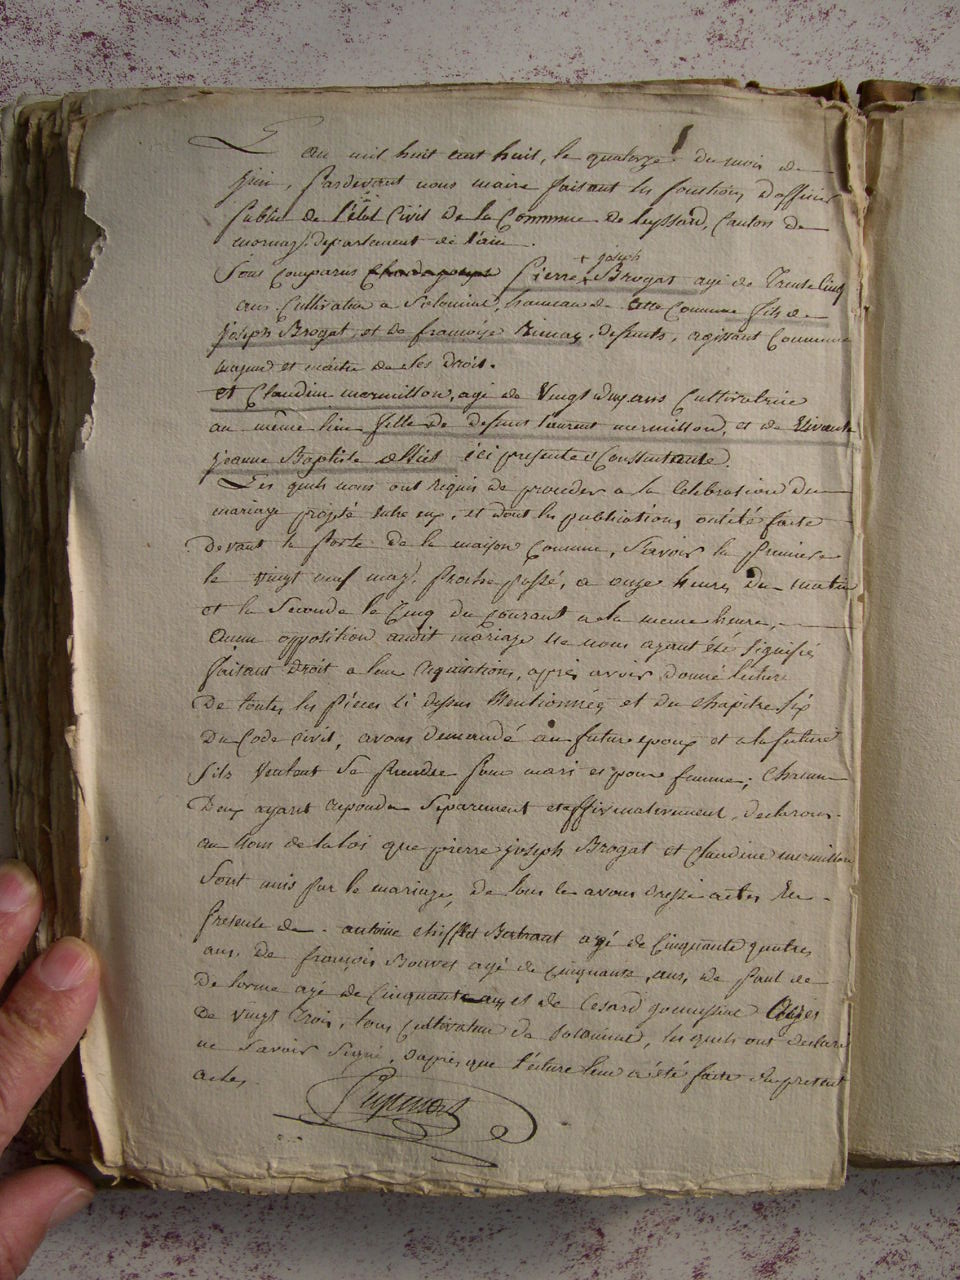 L'an mil huit cent huit, le quatorze du mois de
juin, pardevant nous maire faisant les fonctions d'officier
public de l'état Civil de la Commune de leyssard, Canton de
mornay, departement de l'ain.
Sont Comparus Pierre + joseph Brogat agé de Trente Cinq
ans Cultivateur a Solomiat, hameau de Cette Commune fils de
joseph Brogat, et de françoise defunts, agissant Comme
majeur et maitre de ses droits.
et Claudine mermillon, agé de Vingt deux ans Cultivatrice
au même lieu fille de defunt laurent mermillon, et de Vivante
jeanne Baptiste ici presente et Consentante.
Les quels nous ont requis de proceder a la Célébration du
mariage projeté entre eux, et dont les publications ont été faite
devant la porte de la maison Commune, Savoir la premiere
le vingt neuf may proche passé, a onze heures du matin
et la Seconde le Cinq du Courant a la meme heure,
aucune opposition audit mariage ne nous ayant été Signifié
faisant droit a leur requisitions, après avoir donné lecture
De toutes les pieces Ci dessus Mentionnées et du chapitre six
Du Code Civil, avons demandé au futur epoux et a la future
Sils Veulent Se prendre pour mari et pour femme; Chacun
Deux ayant repondu Separement et affirmativement, declarons
au Nom de la loi que pierre joseph Brogat et Claudine mermillon
Sont unis par le mariage, de tous ce avons dressé actes En
presence de antoine Bertrand agé de Cinquante quatres
ans, de françois Bouvet agé de cinquante ans, de Paul de
De lorme agé de Cinquante ans et de Cesard Agés
De vingt trois, tous Cultivateur de Solomiat, les quels ont déclaré
ne Savoir Signé, d'après que lecture leur a été faite du present
actes